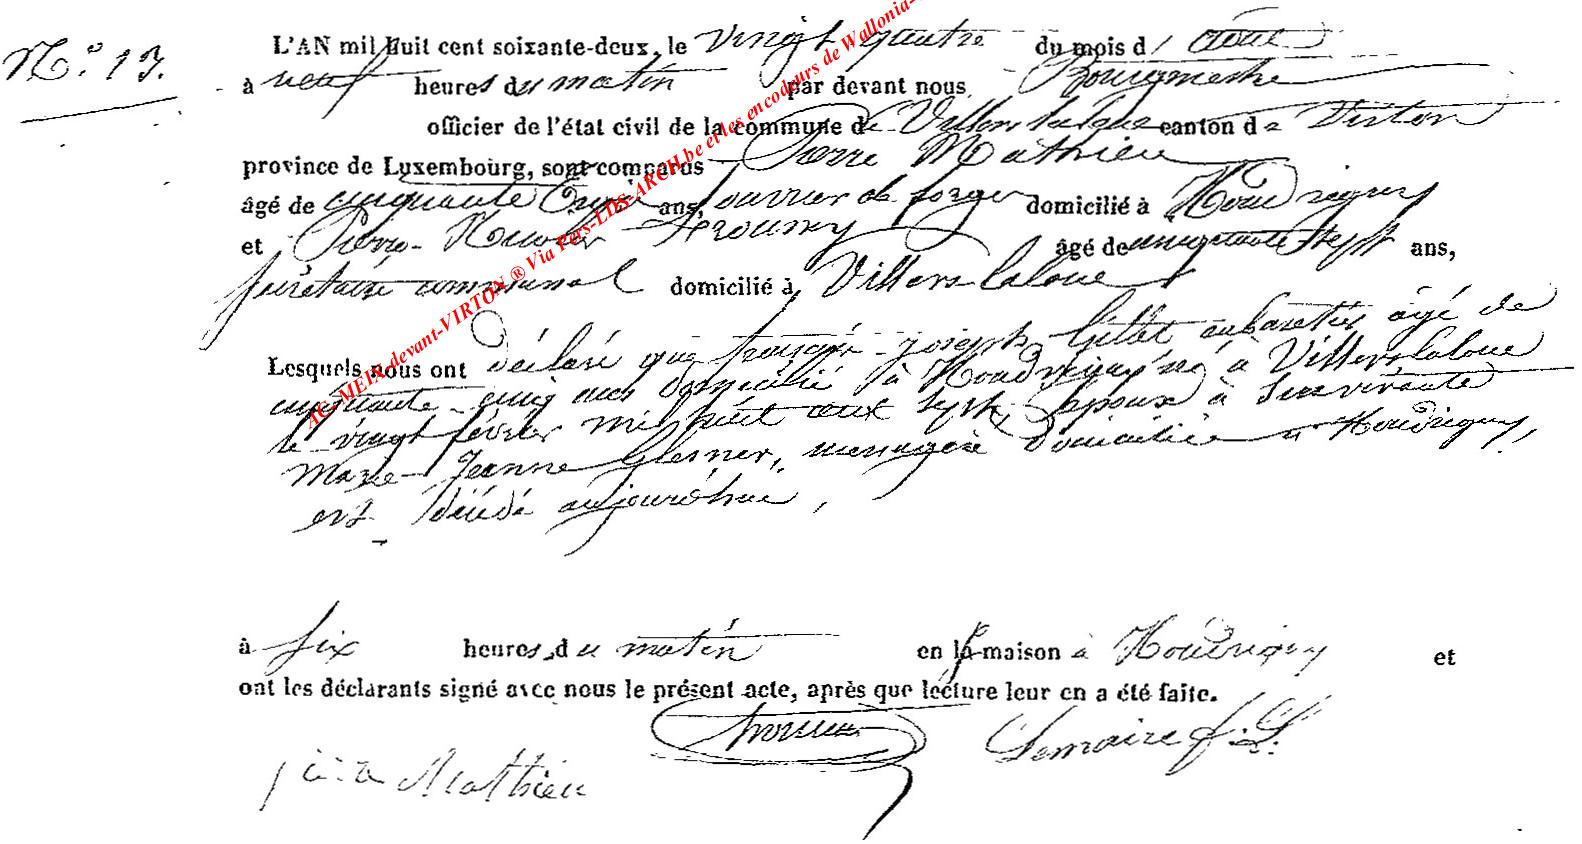 N.° 13.
L'AN mil huit cent soixante-deux, le vingt quatre du mois d'août
à neuf heures du matin par devant nous Bourgmestre
officier de l'état civil de la commune de Villers laloue canton de Virton
province de Luxembourg, sont comparus Pierre Mathieu
âgé de cinquante ans, ouvrier de forge domicilié à Houdrigny
et Pierre âgé de cinquante sept ans,
secrétaire communal domicilié à Villers laloue
Lesquels nous ont déclaré que françois joseph Gillet cabaretier âgé de
cinquante cinq ans domicilié à Houdrigny né à Villers laloue
le vingt février mil huit cent sept, époux à survivante
Marie Jeanne Glesner, menagère domiciliée à Houdrigny,
est décédé aujourd'hui,
à six heures du matin en sa maison à Houdrigny et
ont les déclarants signé avec nous le présent acte, après que lecture leur en a été faite.
Lemaire f. L.
Mathieu
AC-MEIX-devant-VIRTON ® Via Pers-LDS-ARCH.be et les encodeurs de Wallonia-